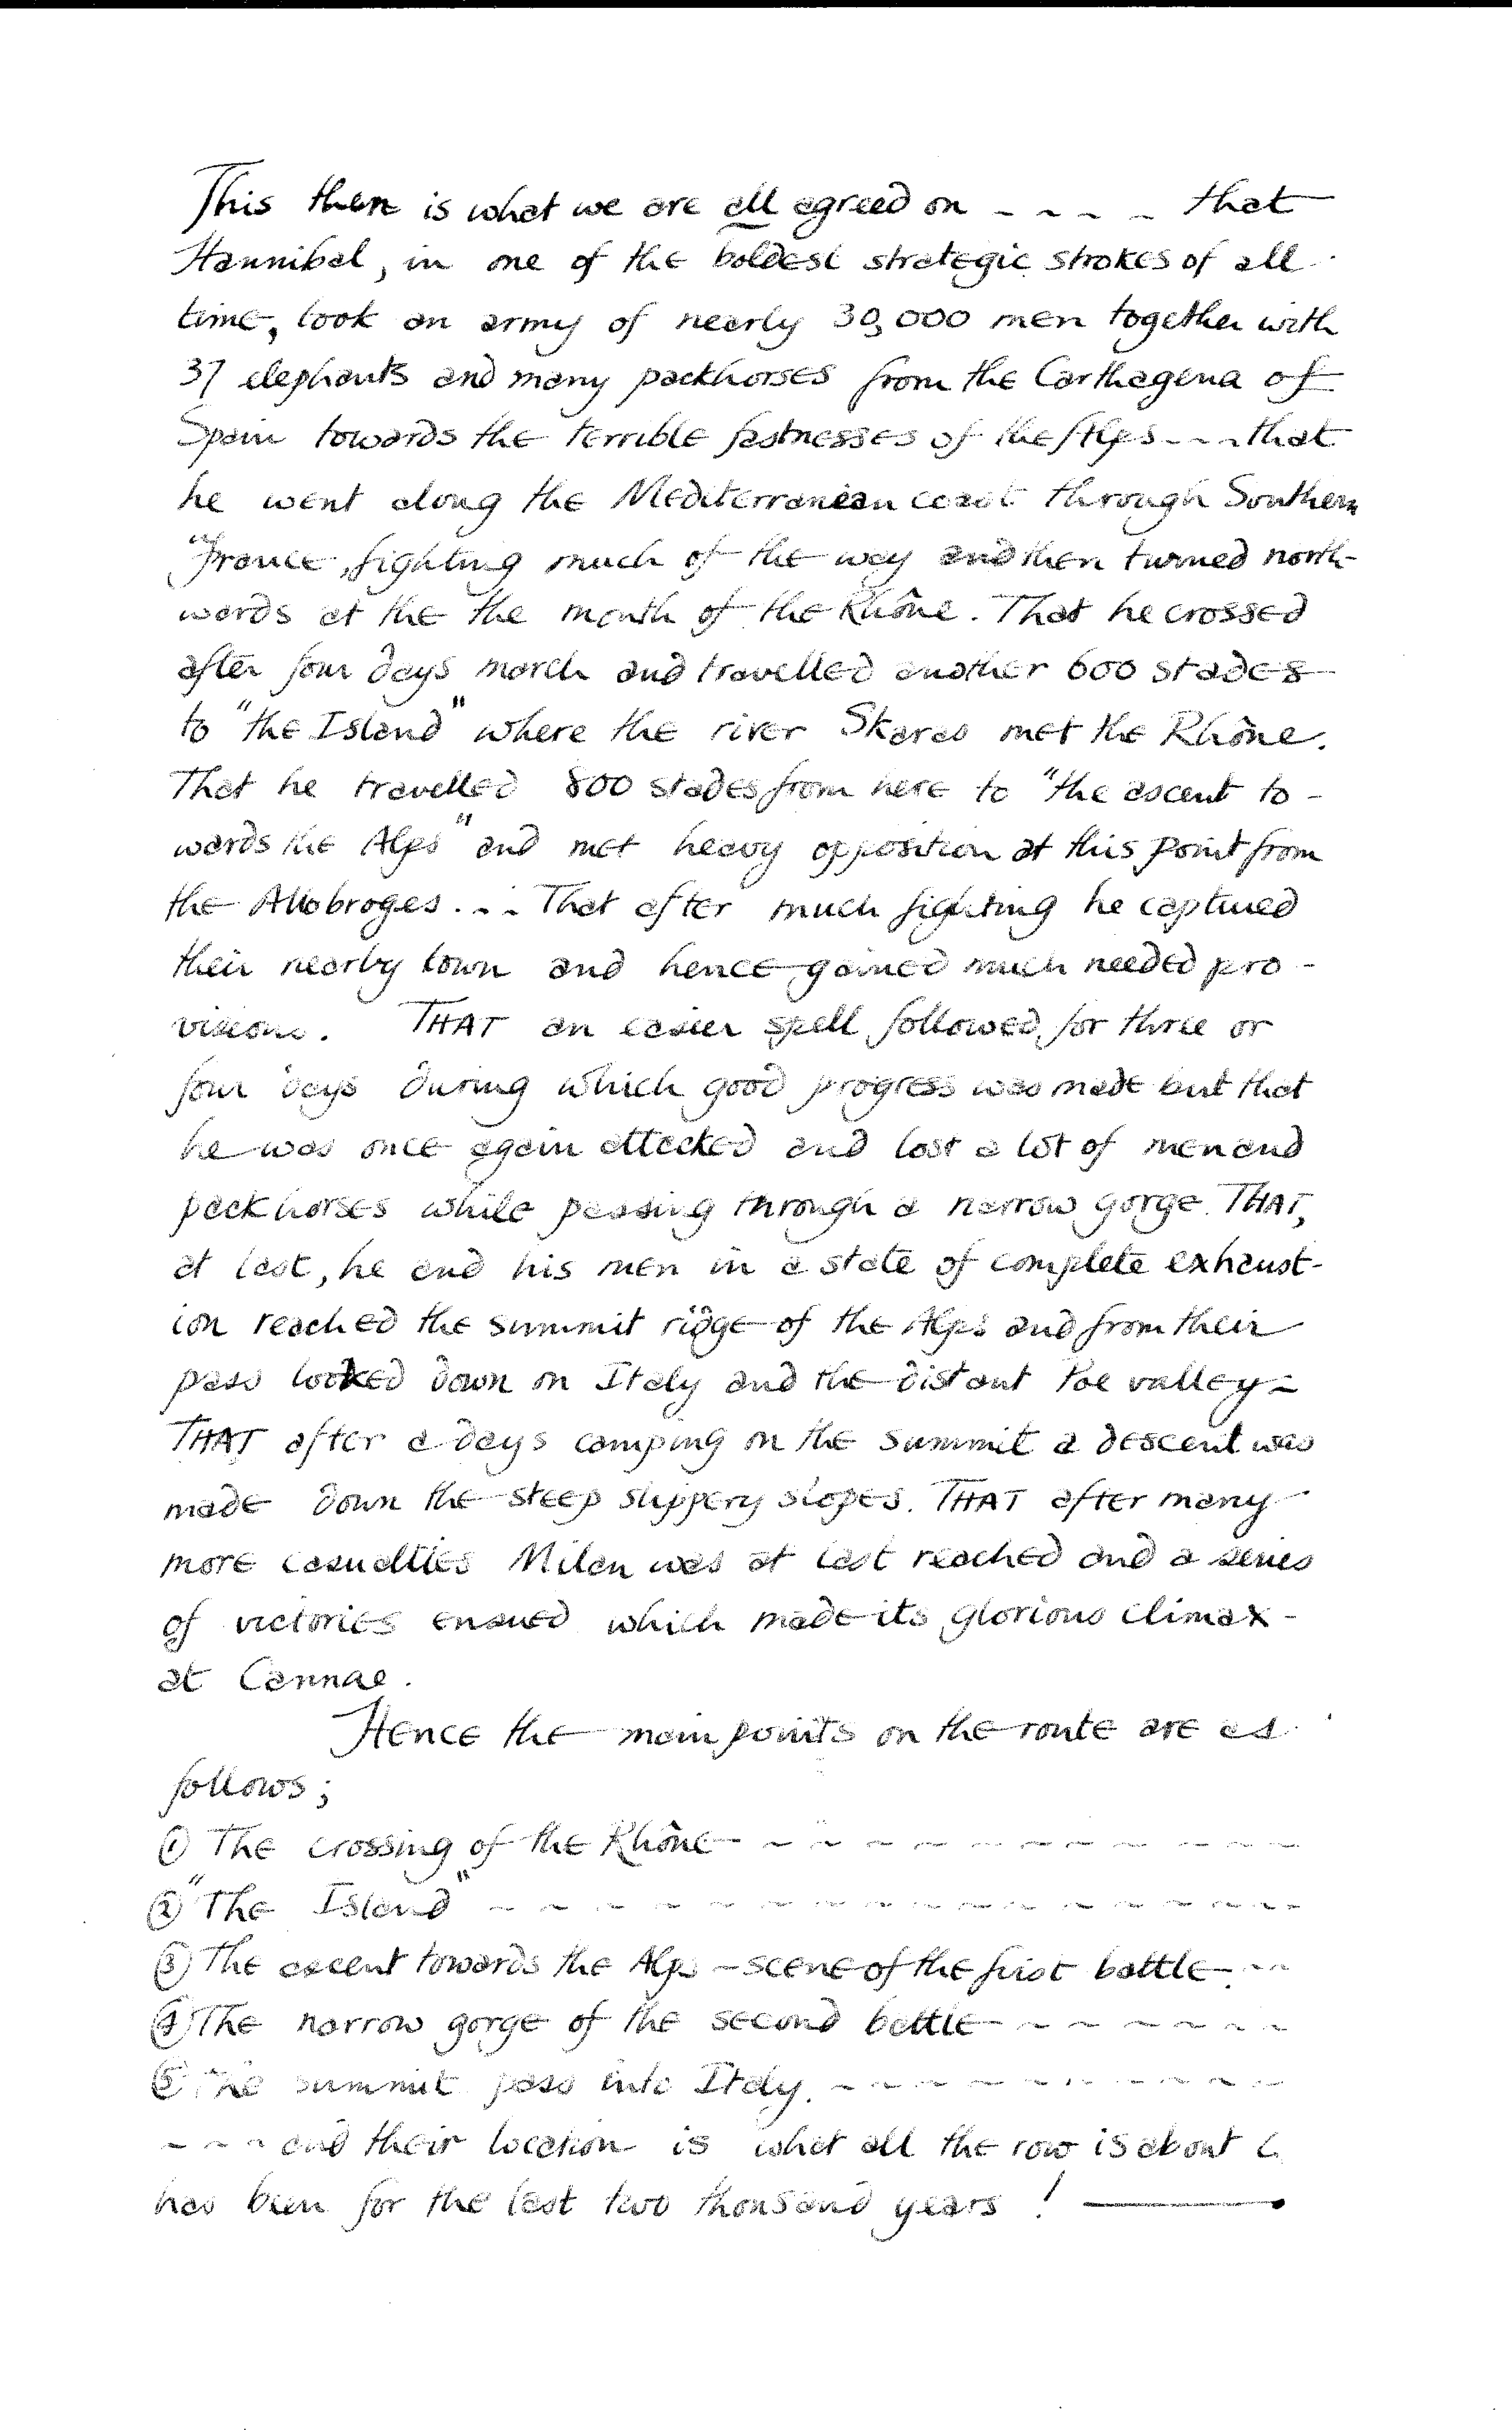 This then is what we are all agreed on - - - - that
Hannibal, in one of the boldest strategic strokes of all
time, took an army of nearly 30,000 men together with
37 elephants and many packhorses from the Carthagena of
Spain towards the terrible fastnesses of the Alps - - - that
he went along the Mediterranean coast through Southern
France, fighting much of the way and then turned north-
wards at the the mouth of the Rhône. That he crossed
after four days march and travelled another 600 stades
to "the Island" where the river Skaras met the Rhône.
That he travelled 800 stades from here to "the ascent to -
wards the Alps" and met heavy opposition at this point from
the Allobroges . . . That after much fighting he captured
their nearby town and hence gained much needed pro -
visions. THAT an easier spell followed, for three or
four days during which good progress was made but that
he was once again attacked and lost a lot of men and
packhorses while passing through a narrow gorge. THAT,
at last, he and his men in a state of complete exhaust-
ion reached the summit ridge of the Alps and from their
pass looked down on Italy and the distant Poe valley -
THAT after a days camping on the summit a descent was
made down the steep slippery slopes. THAT after many
more casualties Milan was at last reached and a series
of victories ensued which made its glorious climax -
at Cannae.
Hence the main points on the route are as
follows;
① The crossing of the Rhône - - - - - - - - - - -
② "The Island" - - - - - - - - - - - - - - - -
③ The ascent towards the Alps - scene of the first battle - - -
④ The narrow gorge of the second battle - - - - - - -
⑤ The summit pass into Italy. - - - - - - - - - -
- - - and their location is what all the row is about &
has been for the last two thousand years ! ———